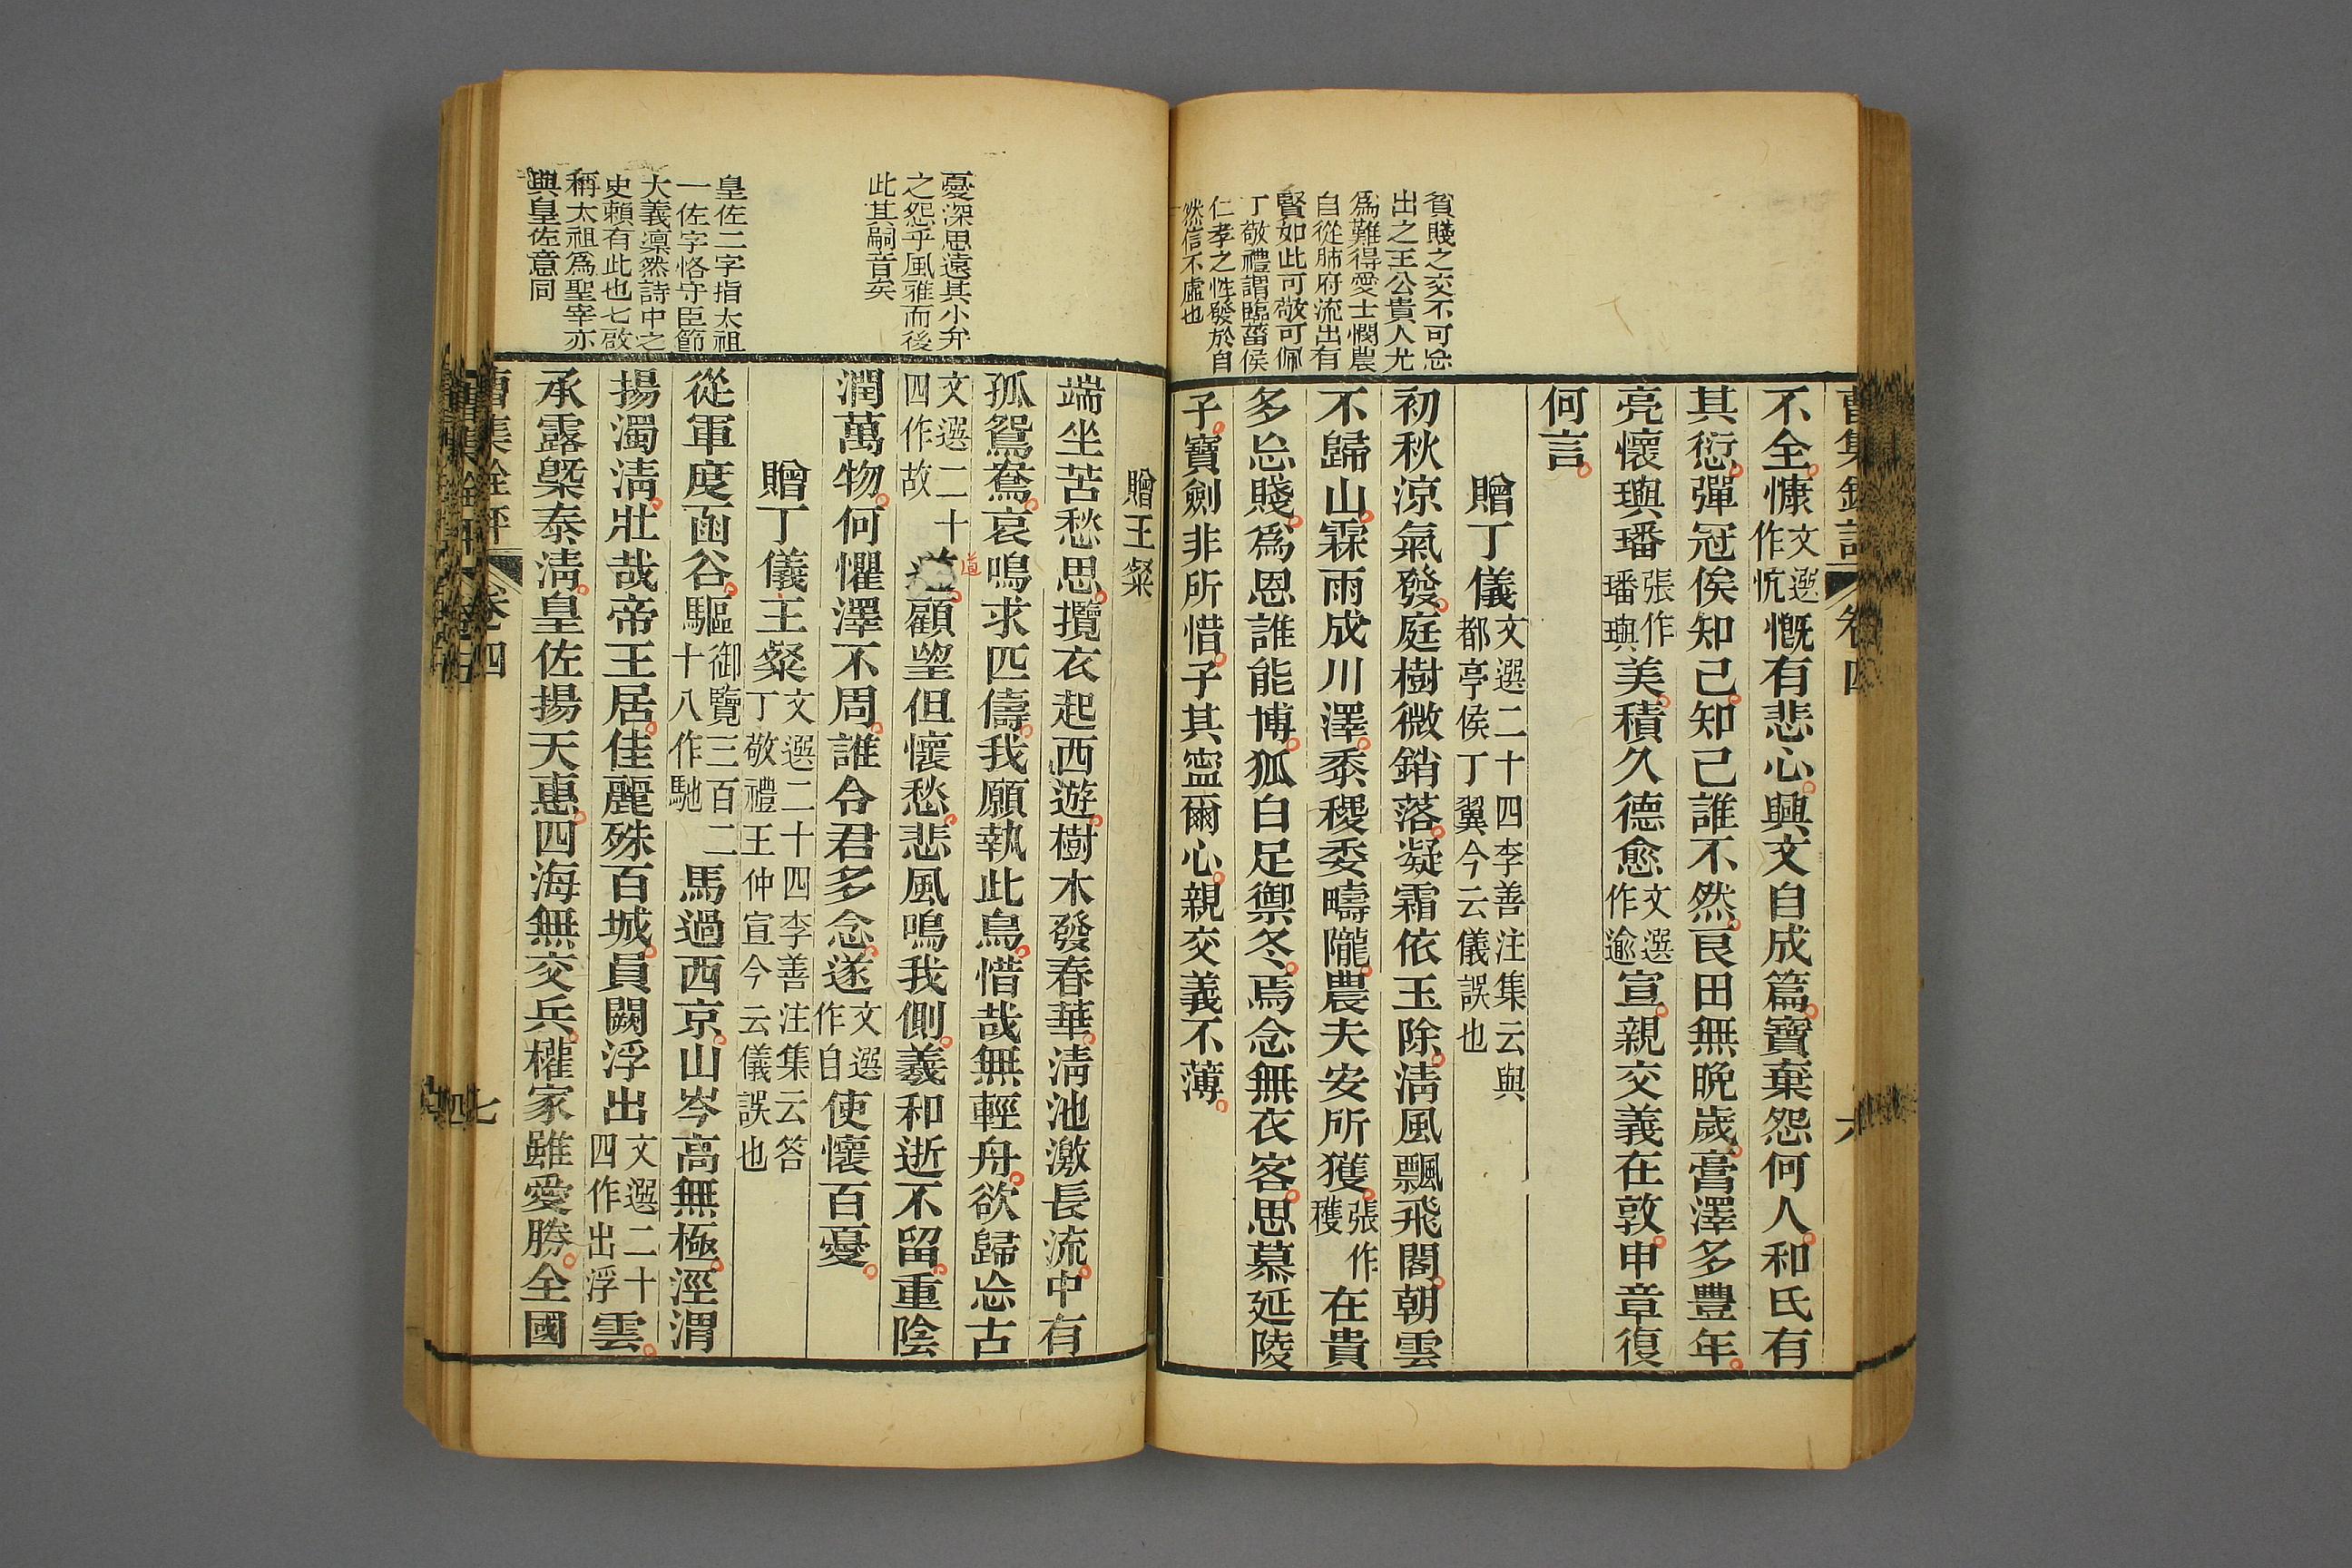 貧賤之交不可忘
出之王公貴人尤
爲難得愛士憫農
自從肺府流出有
賢如此可敬可佩
丁敬禮謂臨菑侯
仁孝之性發於自
然信不虛也
曹集銓評 卷四 六
不全慷文選作忼慨有悲心興文自成篇寶棄怨何人和氏有
其愆彈冠俟知己知己誰不然良田無晚歲膏澤多豐年
亮懷璵璠張作璠璵美積久德愈文選作逾宣親交義在敦申章復
何言
贈丁儀文選二十四李善注集云與都亭侯丁翼今云儀誤也
初秋涼氣發庭樹微銷落凝霜依玉除淸風飄飛閣朝雲
不歸山霖雨成川澤黍稷委疇隴農夫安所獲張作穫在貴
多忘賤爲恩誰能博狐白足禦冬焉念無衣客思慕延陵
子寶劍非所惜子其寍爾心親交義不薄
憂深思遠其小弁
之怨乎風雅而後
此其嗣音矣
皇佐二字指太祖
一佐字恪守臣節
大義凛然詩中之
史賴有此也七啟
稱太祖爲聖宰亦
與皇佐意同
贈王粲
端坐苦愁思攬衣起西遊樹木發春華淸池激長流中有
孤鴛鴦哀鳴求匹儔我願執此鳥惜哉無輕舟欲歸忘古
文選二十四作故道顧望但懷愁悲風鳴我側羲和逝不留重陰
潤萬物何懼澤不周誰令君多念遂文選作自使懷百憂
贈丁儀王粲文選二十四李善注集云答丁敬禮王仲宣今云儀誤也
從軍度函谷驅御覽三百二十八作馳馬過西京山岑高無極涇渭
揚濁淸壯哉帝王居佳麗殊百城員闕浮出文選二十四作出浮雲
承露槩泰淸皇佐揚天惠四海無交兵權家雖愛勝全國
曹集銓評 卷四 七